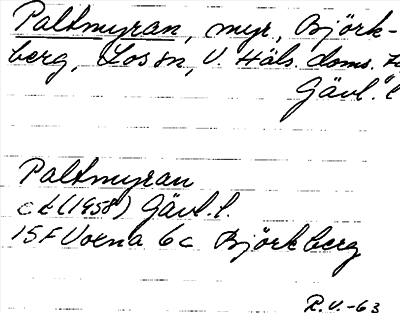 Paltmyran, myr, Björk-
berg, Los sn, V. Häls. doms.
Gävl. l
Paltmyran
ek (1958) Gävl. l.
15F Voxna 6c Björkberg
R.V.-63